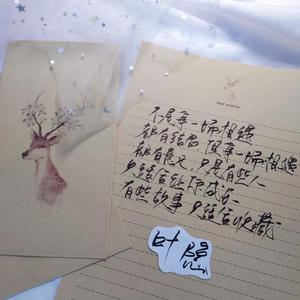 不是每一场相遇
都有结局 但每一场相遇
都有意义 只是有些人
只适合让你成长
有些故事 只适合收藏